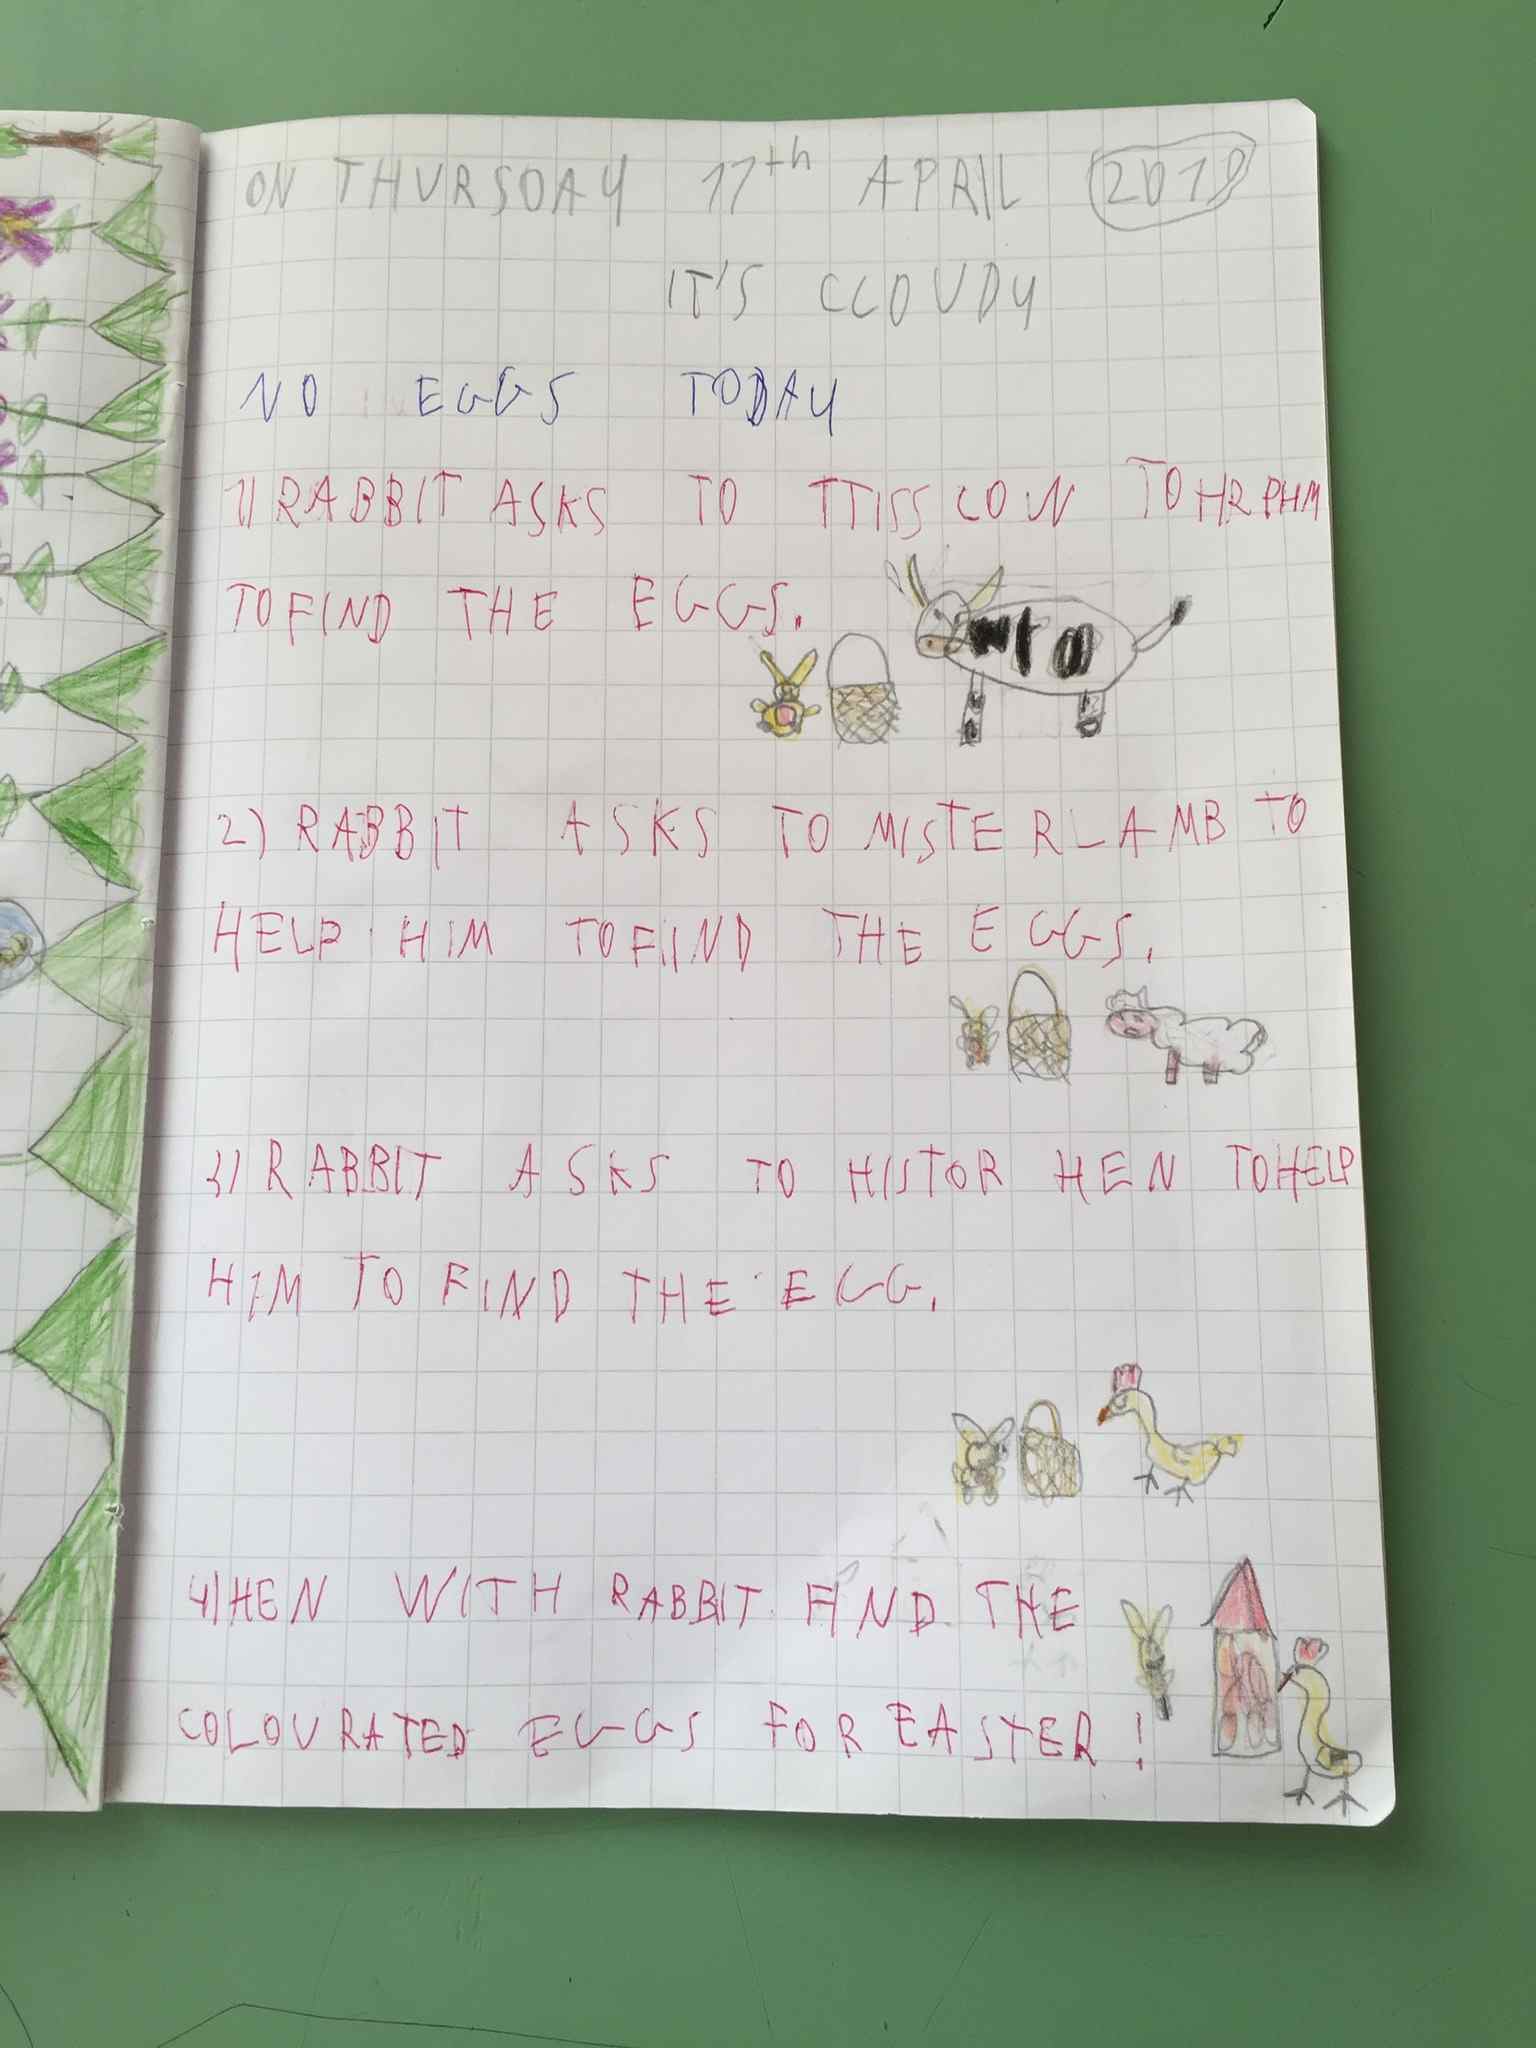 ON THURSDAY 11th APRIL 2019
IT'S CLOUDY
NO EGGS TODAY
1) RABBIT ASKS TO TTISS COW TO HRPHM
TO FIND THE EGGS.
2) RABBIT ASKS TO MISTER LAMB TO
HELP HIM TO FIND THE EGGS.
3) RABBIT ASKS TO HISTOR HEN TO HELP
HIM TO FIND THE EGG.
4) HEN WITH RABBIT FIND THE
COLOURATED EGGS FOR EASTER!